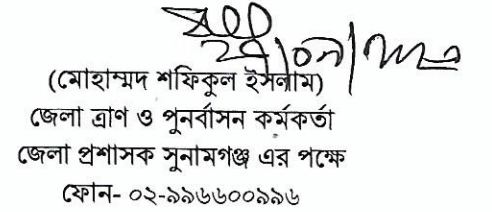 (মোহাম্মদ শফিকুল ইসলাম)
জেলা ত্রাণ ও পুনর্বাসন কর্মকর্তা
জেলা প্রশাসক সুনামগঞ্জ এর পক্ষে
ফোন- ০২-৯৯৬৬০০৯৯৬